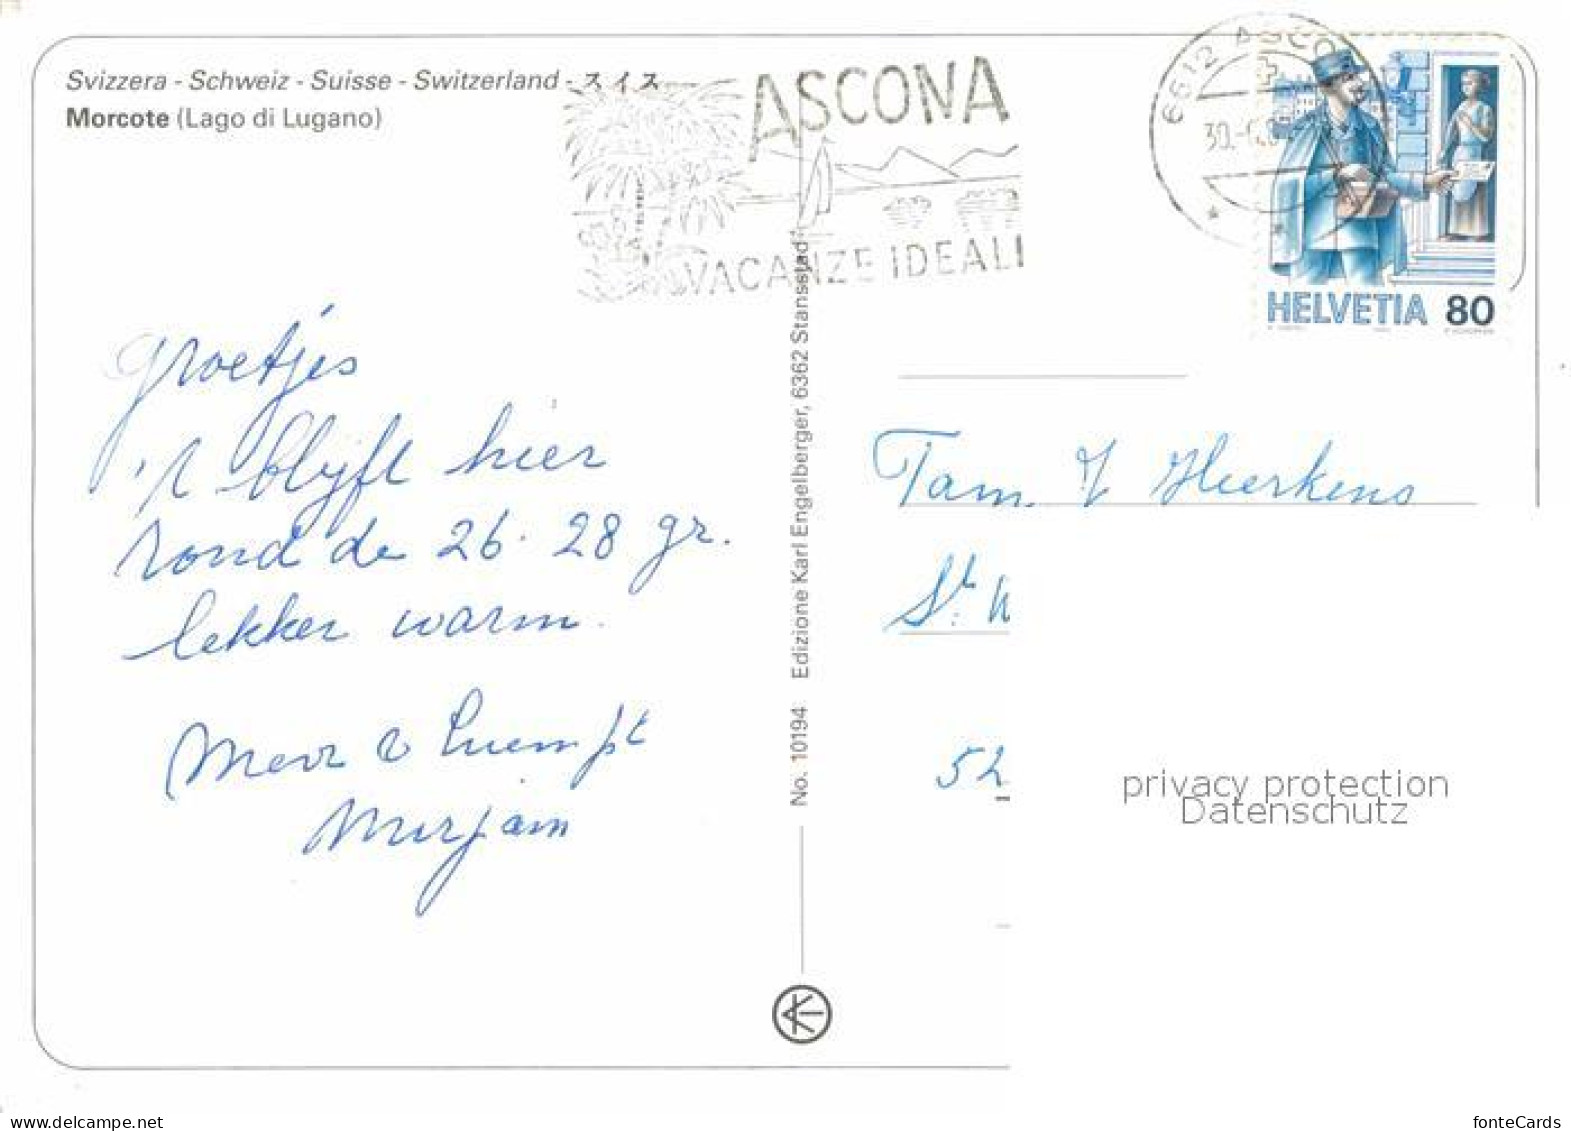 Svizzera - Schweiz - Suisse - Switzerland - スイス
Morcote (Lago di Lugano)
ASCONA
VACANZE IDEALI
6612 ASCO
30.-6.8
HELVETIA 80
groetjes
't blijft hier
rond de 26. 28 gr.
lekker warm.
Mirjam
No. 10194 Edizione Karl Engelberger, 6362 Stansstad
Fam. J Heerkens
St.
52
privacy protection
Datenschutz
fonteCards